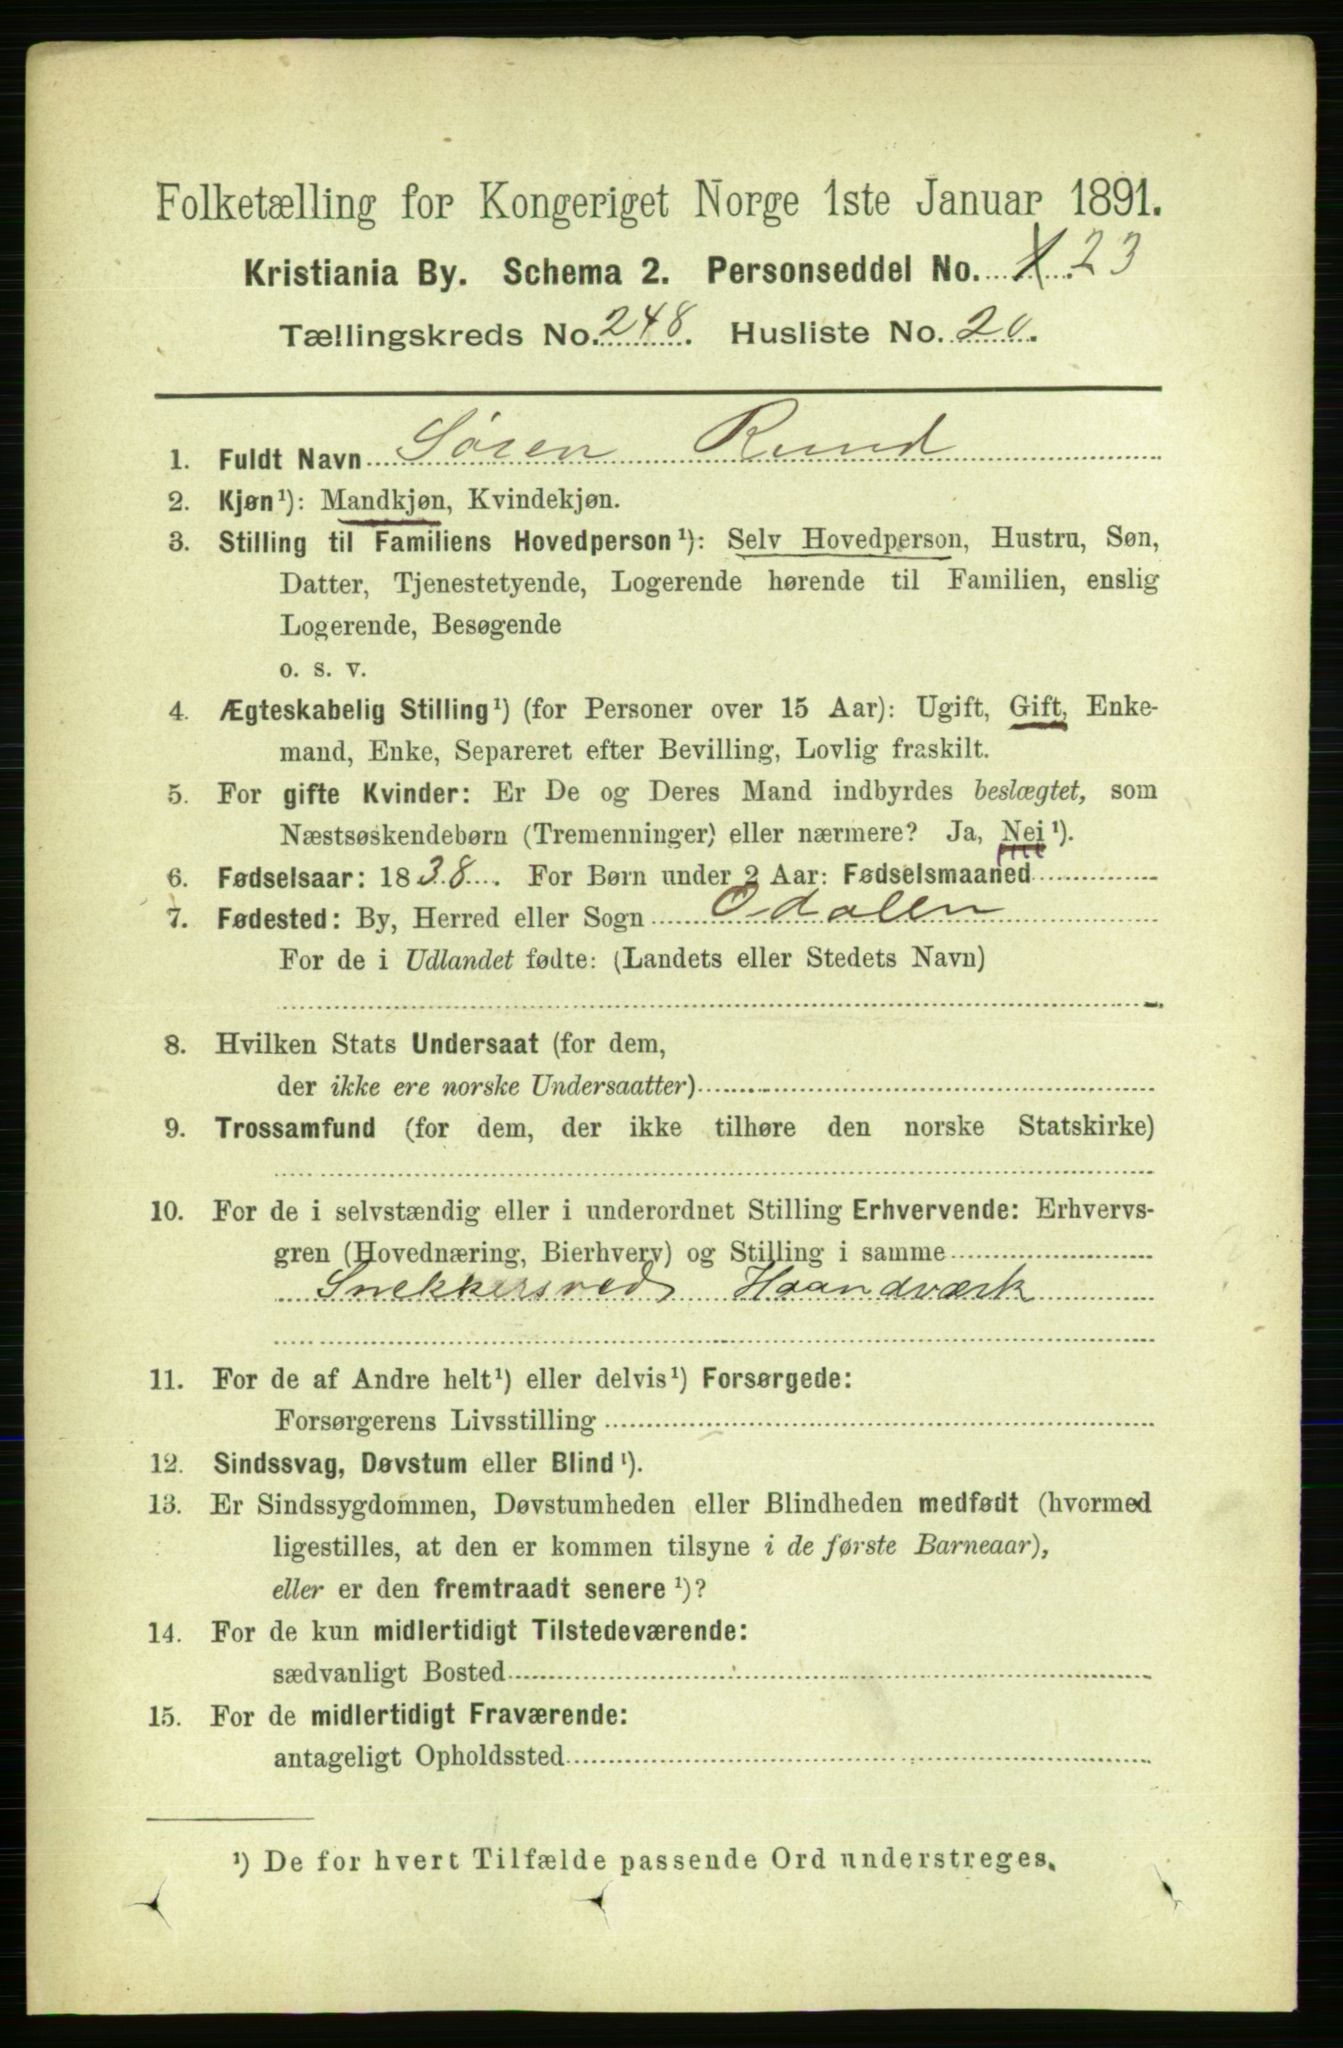 Folketælling for Kongeriget Norge 1ste Januar 1891.
Kristiania By. Schema 2. Personseddel No. 23
Tællingskreds No. 248. Husliste No. 20.
1. Fuldt Navn Søren Ruud
2. Kjøn¹): Mandkjøn, Kvindekjøn.
3. Stilling til Familiens Hovedperson¹): Selv Hovedperson, Hustru, Søn,
Datter, Tjenestetyende, Logerende hørende til Familien, enslig
Logerende, Besøgende
o. s. v.
4. Ægteskabelig Stilling¹) (for Personer over 15 Aar): Ugift, Gift, Enke-
mand, Enke, Separeret efter Bevilling, Lovlig fraskilt.
5. For gifte Kvinder: Er De og Deres Mand indbyrdes beslægtet, som
Næstsøskendebørn (Tremenninger) eller nærmere? Ja, Nei¹).
6. Fødselsaar: 1838. For Børn under 2 Aar: Fødselsmaaned
7. Fødested: By, Herred eller Sogn Odalen
For de i Udlandet fødte: (Landets eller Stedets Navn)
8. Hvilken Stats Undersaat (for dem,
der ikke ere norske Undersaatter)
9. Trossamfund (for dem, der ikke tilhøre den norske Statskirke)
10. For de i selvstændig eller i underordnet Stilling Erhvervende: Erhvervs-
gren (Hovednæring, Bierhverv) og Stilling i samme
Snekkersved Haandværk
11. For de af Andre helt¹) eller delvis¹) Forsørgede:
Forsørgerens Livsstilling
12. Sindssvag, Døvstum eller Blind¹).
13. Er Sindssygdommen, Døvstumheden eller Blindheden medfødt (hvormed
ligestilles, at den er kommen tilsyne i de første Barneaar),
eller er den fremtraadt senere¹)?
14. For de kun midlertidigt Tilstedeværende:
sædvanligt Bosted
15. For de midlertidigt Fraværende:
antageligt Opholdssted
¹) De for hvert Tilfælde passende Ord understreges.